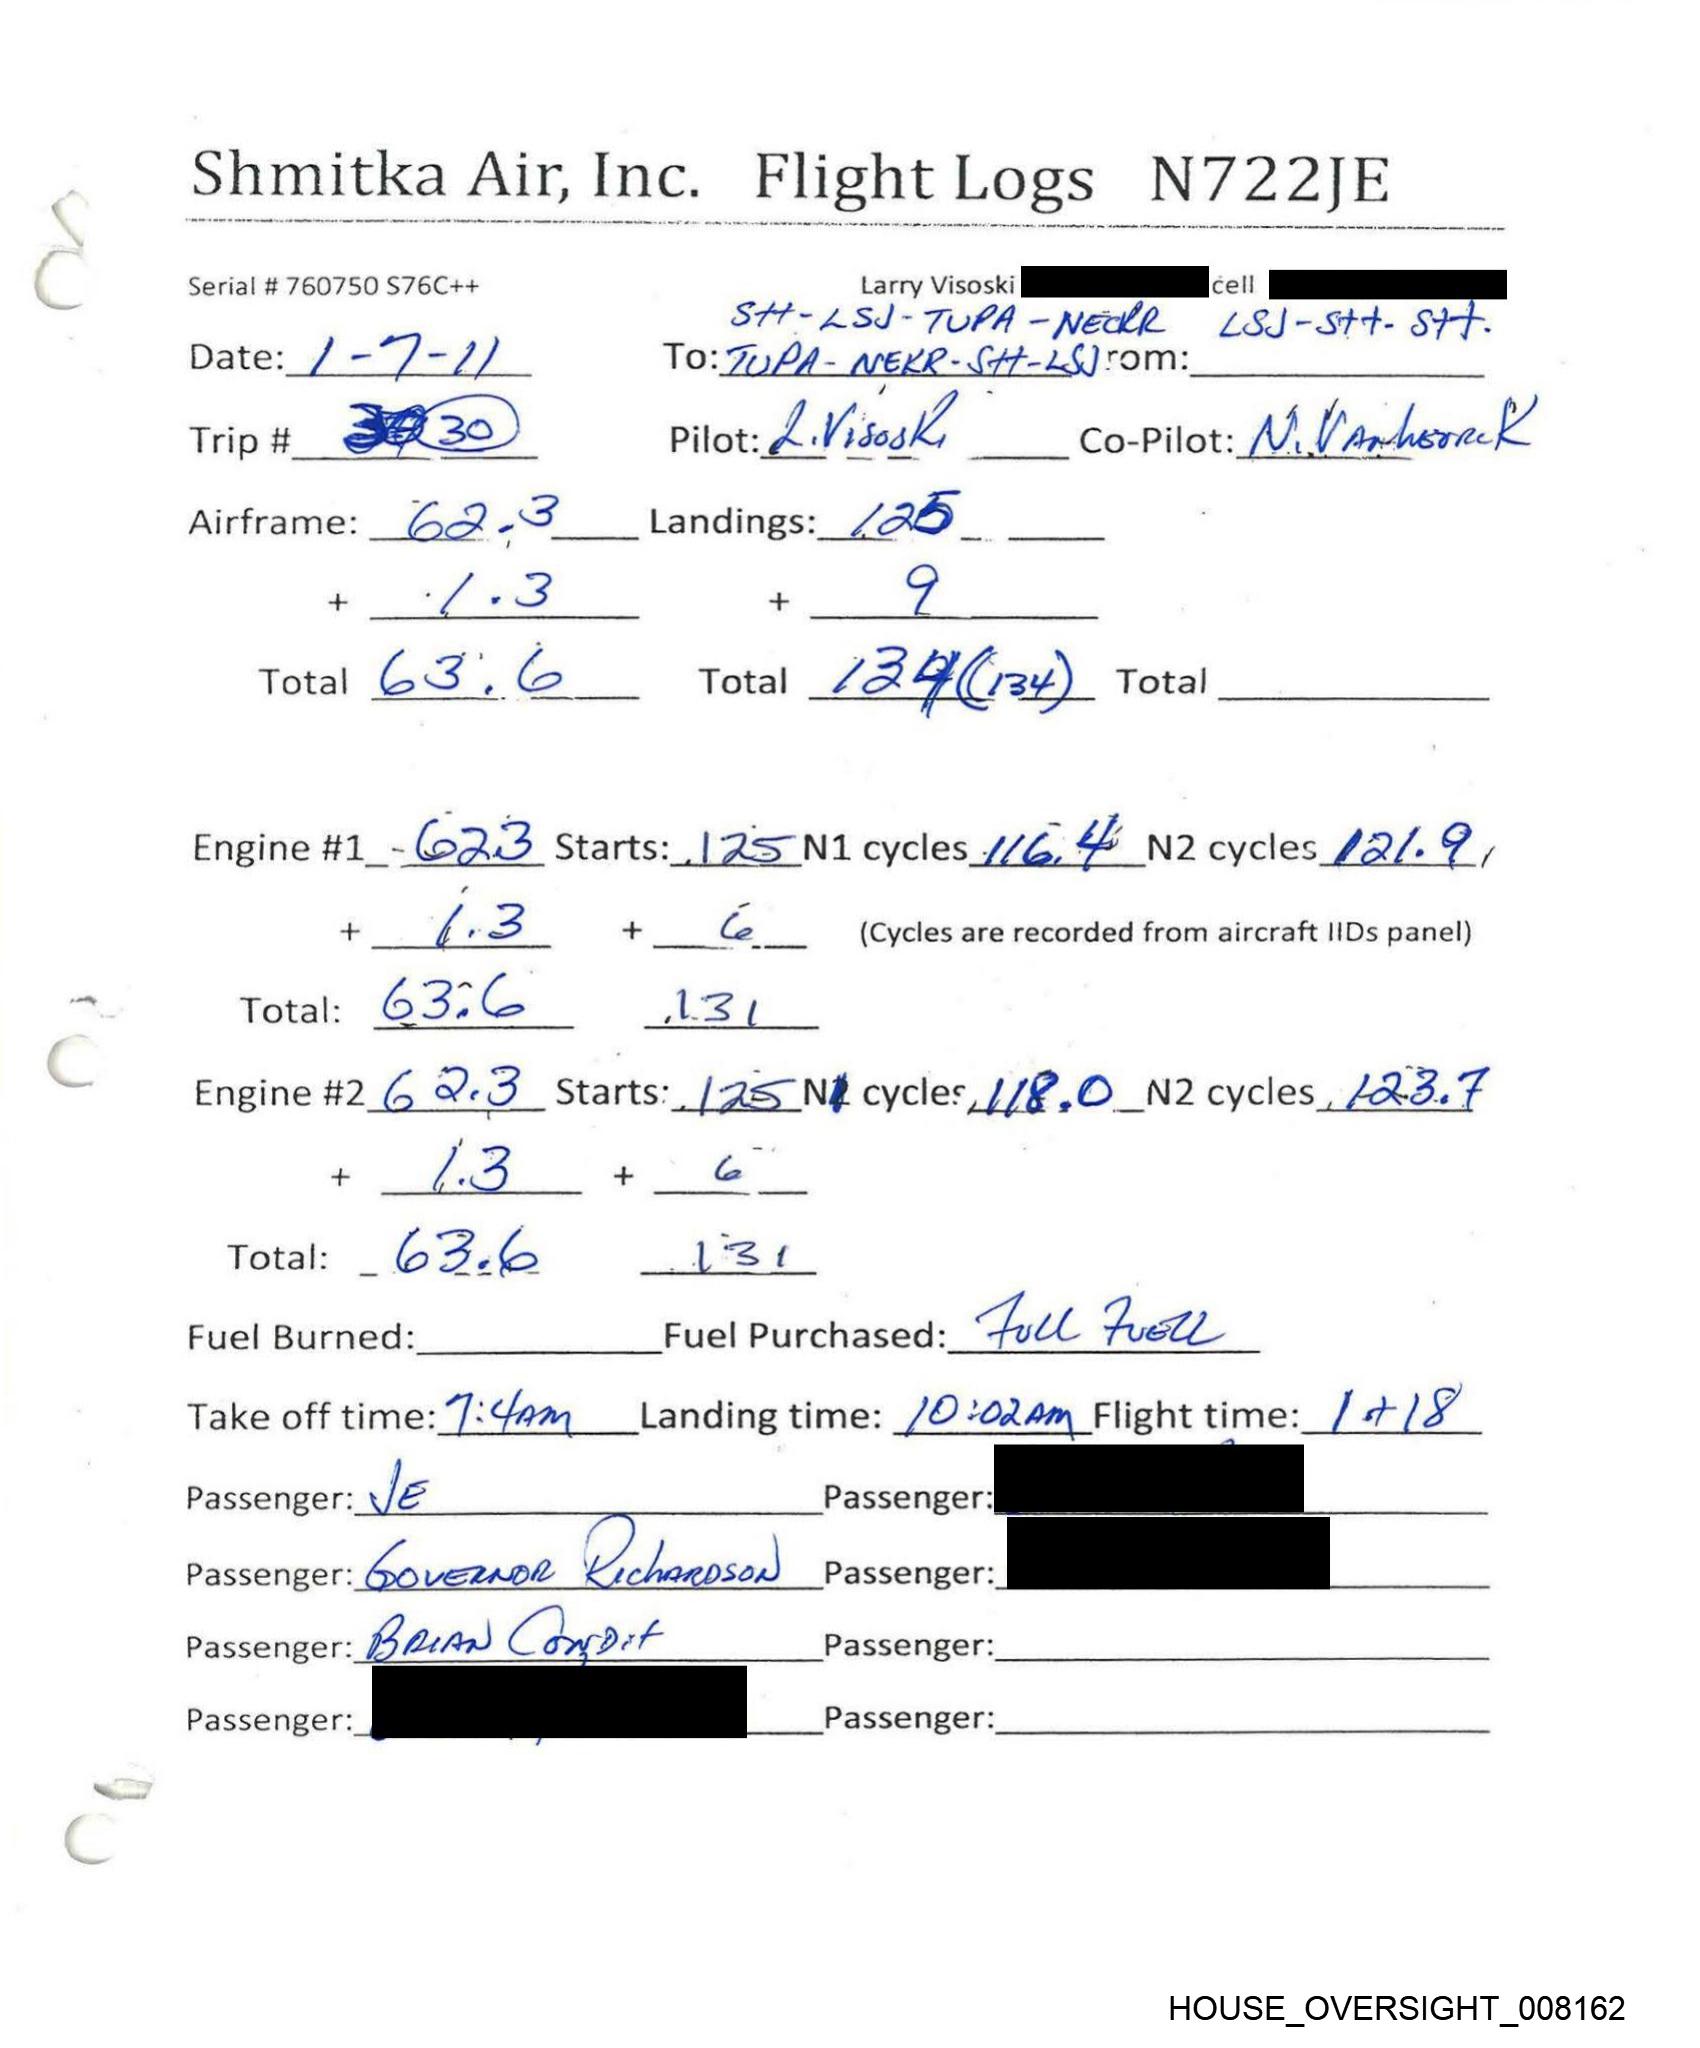 Shmitka Air, Inc. Flight Logs N722JE
Serial # 760750 S76C++ Larry Visoski cell
STT-LSJ-TUPA-NECKR LSJ-STT-STT.
Date: 1-7-11 To: TUPA-NEKR-STT-LSJ rom:
Trip # 30 Pilot: L.Visoski Co-Pilot:
Airframe: 62.3 Landings: 125
+ 1.3 + 9
Total 63.6 Total 134 (134) Total
Engine #1 623 Starts: 125 N1 cycles 116.4 N2 cycles 121.9
+ 1.3 + 6 (Cycles are recorded from aircraft IIDs panel)
Total: 63.6 131
Engine #2 62.3 Starts: 125 N1 cycles 118.0 N2 cycles 123.7
+ 1.3 + 6
Total: 63.6 131
Fuel Burned: Fuel Purchased: Full Fuell
Take off time: 7:4AM Landing time: 10:02AM Flight time: 1+18
Passenger: JE Passenger:
Passenger: GOVERNOR RICHARDSON Passenger:
Passenger: BRIAN CONDIT Passenger:
Passenger: Passenger:
HOUSE_OVERSIGHT_008162